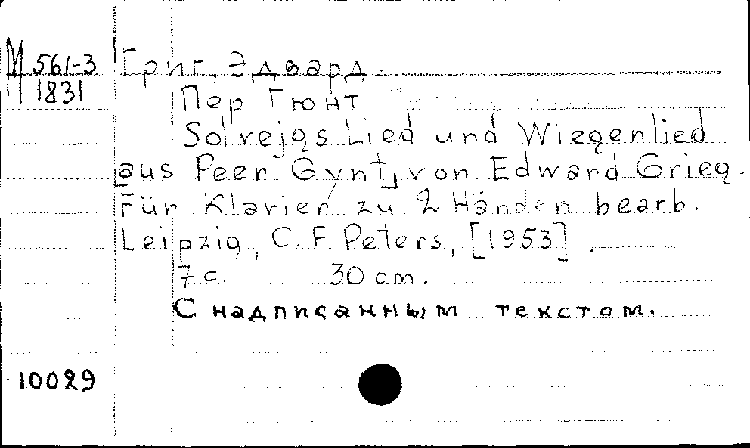 М 561-3
1831
Григ, Эдвард.
Пер Гюнт
Solvejgs Lied und Wiegenlied
aus Peer Gynt, von Edward Grieg.
Für Klavier zu 2 Händen bearb.
Leipzig, C. F. Peters, [1953].
7 с. 30 см.
С надписанным текстом.
10029